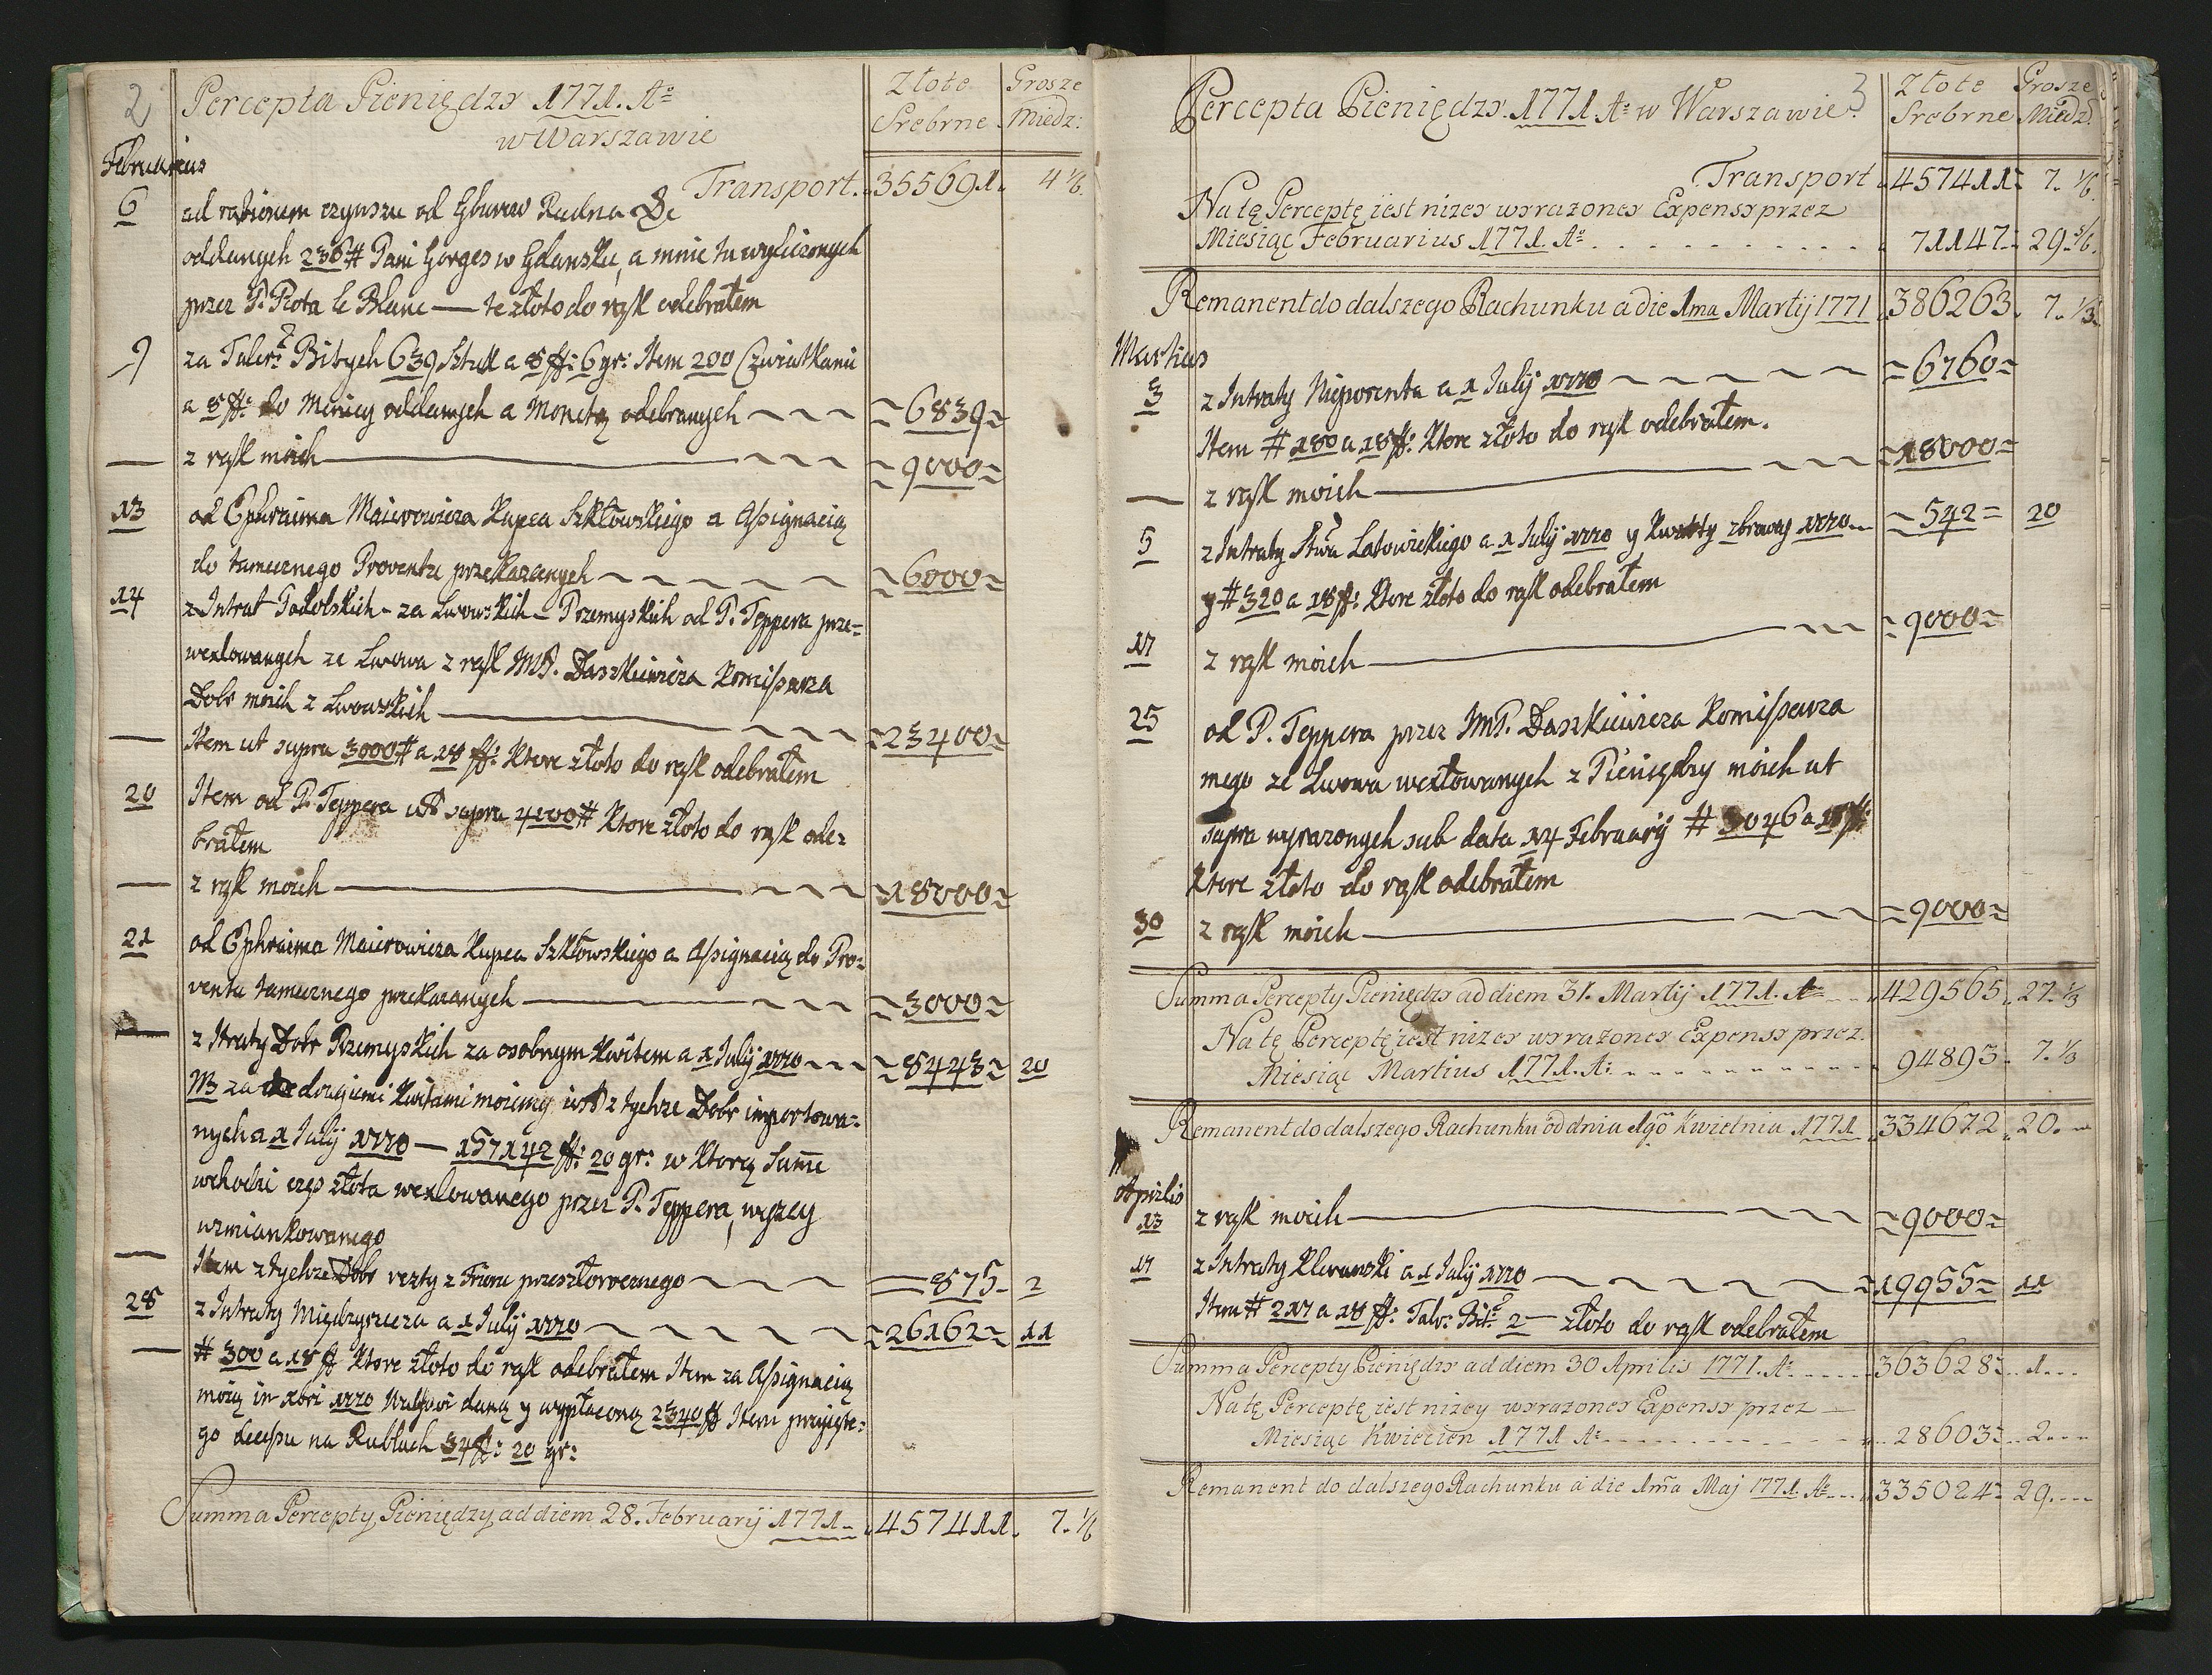 2
Percepta Pieniędzy 1771. Ao
w Warszawie
Złote Srebrne
Grosze Miedz:
Februarius
Transport. 355691. 4 1/6.
6 ad rationem czynszu od Gburow Rudna &c
oddanych 236# Pani Gorges w Gdansku, a mnie tu wyliczonych
przez P. Piota le Blanc — te złoto do rąk odebrałem
9 za Taler: Bitych 639 Sztuk a 8 ff: 6 gr: Item 200 Czwiatkami
a 8 ff: do Minicy oddanych a Monetą odebranych 6839
— z rąk moich 9000
13 od Ephraima Maierowicza Kupca Szkłowskiego a Assignacią
do tamecznego Proventu przekazanych 6000
14 z Intrat Podolskich - za Lwowskich - Przemyskich od P. Teppera prze=
wexlowanych ze Lwowa z rąk MP. Daszkiewicza Komissarza
Dobr moich z Lwowskich 23400
— Item ut supra 3000# a 18 ff: Ktore złoto do rąk odebrałem
20 Item od P. Teppera ut supra 4200# Ktore złoto do rąk ode=
brałem
— z rąk moich 18000
21 od Ephraima Maierowicza Kupca Szkłowskiego a Assignacią do Pro=
ventu tamecznego przekazanych 3000
— z Itraty Dobr Przemyskich za osobnym Kwitem a 1 Julij 1770 8443 20
NB za drugiemi Kwitami moiemi z tychze Dobr importowa=
nych a 1 Julij 1770 — 157142 ff: 20 gr: w Ktorą Sumę
wchodzi częs złota wexlowanego przez P. Teppera, wyzey
wzmiankowanego
— Item z tychze Dobr reszty z Trienu przeszłorocznego 875 2
28 z Intraty Międzyrzecza a 1 Julij 1770 26162 11
— # 300 a 18 ff Ktore złoto do rąk odebrałem Item za Assignacią
moią in Xbri 1770 daną y wypłaconą 2340 ff Item przyięte=
go decessu na Rublach 34 ff: 20 gr:
Summa Percepty Pieniędzy ad diem 28. Februarij 1771 457411. 7. 1/6
3
Percepta Pieniędzy. 1771 Ao w Warszawie.
Złote Srebrne
Grosze Miedz.
Transport 457411 7. 1/6.
Na tę Perceptę iest nizey wyrazoney Expensy przez
Miesiąc Februarius 1771. Ao 71147. 29. 5/6.
Remanent do dalszego Rachunku a die 1ma Martij 1771 386263. 7. 1/3.
Martius
3 z Intraty Nieporenta a 1 Julij 1770 6760
Item # 180 a 18 ff: Ktore złoto do rąk odebrałem.
— z rąk moich 18000
5 z Intraty Stwa Latowickiego a 1 Julij 1770 y Kwarty zbrowey 1770 542 20
y # 320 a 18 ff: Ktore złoto do rąk odebrałem
17 z rąk moich 9000
25 od P. Teppera przez MP. Daszkiewicza Komissarza
mego ze Lwowa wexlowanych z Pieniędzy moich ut
supra wyrazonych sub data 14 Februarij # 3046 a 18 ff:
Ktore złoto do rąk odebrałem
30 z rąk moich 9000
Summa Percepty Pieniędzy ad diem 31. Martij 1771. Ao 429565. 27. 1/3
Na tę Perceptę iest nizey wyrazoney Expensy przez.
Miesiąc Martius 1771. Ao: 94893 7. 1/3
Remanent do dalszego Rachunku od dnia 1go Kwietnia 1771 334672 20.
Aprilis
13 z rąk moich 9000
17 z Intraty Klewanski a 1 Julij 1770 19955 11
Item # 217 a 18 ff: Taler: Bit: 2 — złoto do rąk odebrałem
Summa Percepty Pieniędzy ad diem 30 Aprilis 1771. Ao 363628 1
Na tę Perceptę iest nizey wyrazoney Expensy przez
Miesiąc Kwiecien 1771 Ao 28603 2
Remanent do dalszego Rachunku a die 1ma Maj 1771. Ao 335024 29